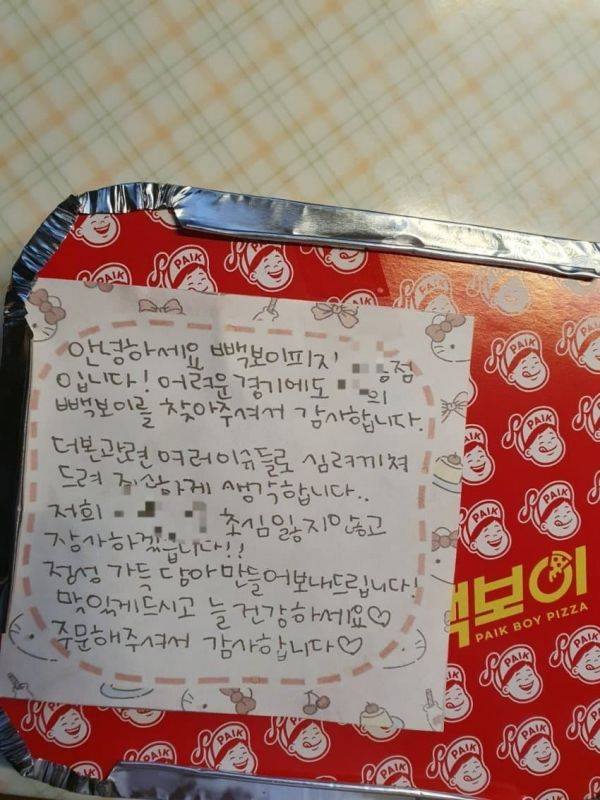 안녕하세요 빽보이피자 점
입니다! 어려운경기에도 의
빽보이를 찾아주셔서 감사합니다.
더본관련 여러이슈들로 심려끼쳐
드려 죄송하게 생각합니다..
저희 초심잃지안고
장사하겠습니다!!
정성 가득 담아만들어보내드립니다!
맛있게드시고 늘건강하세요♡
주문해주셔서 감사합니다♡
빽보이
PAIK BOY PIZZA
PAIK